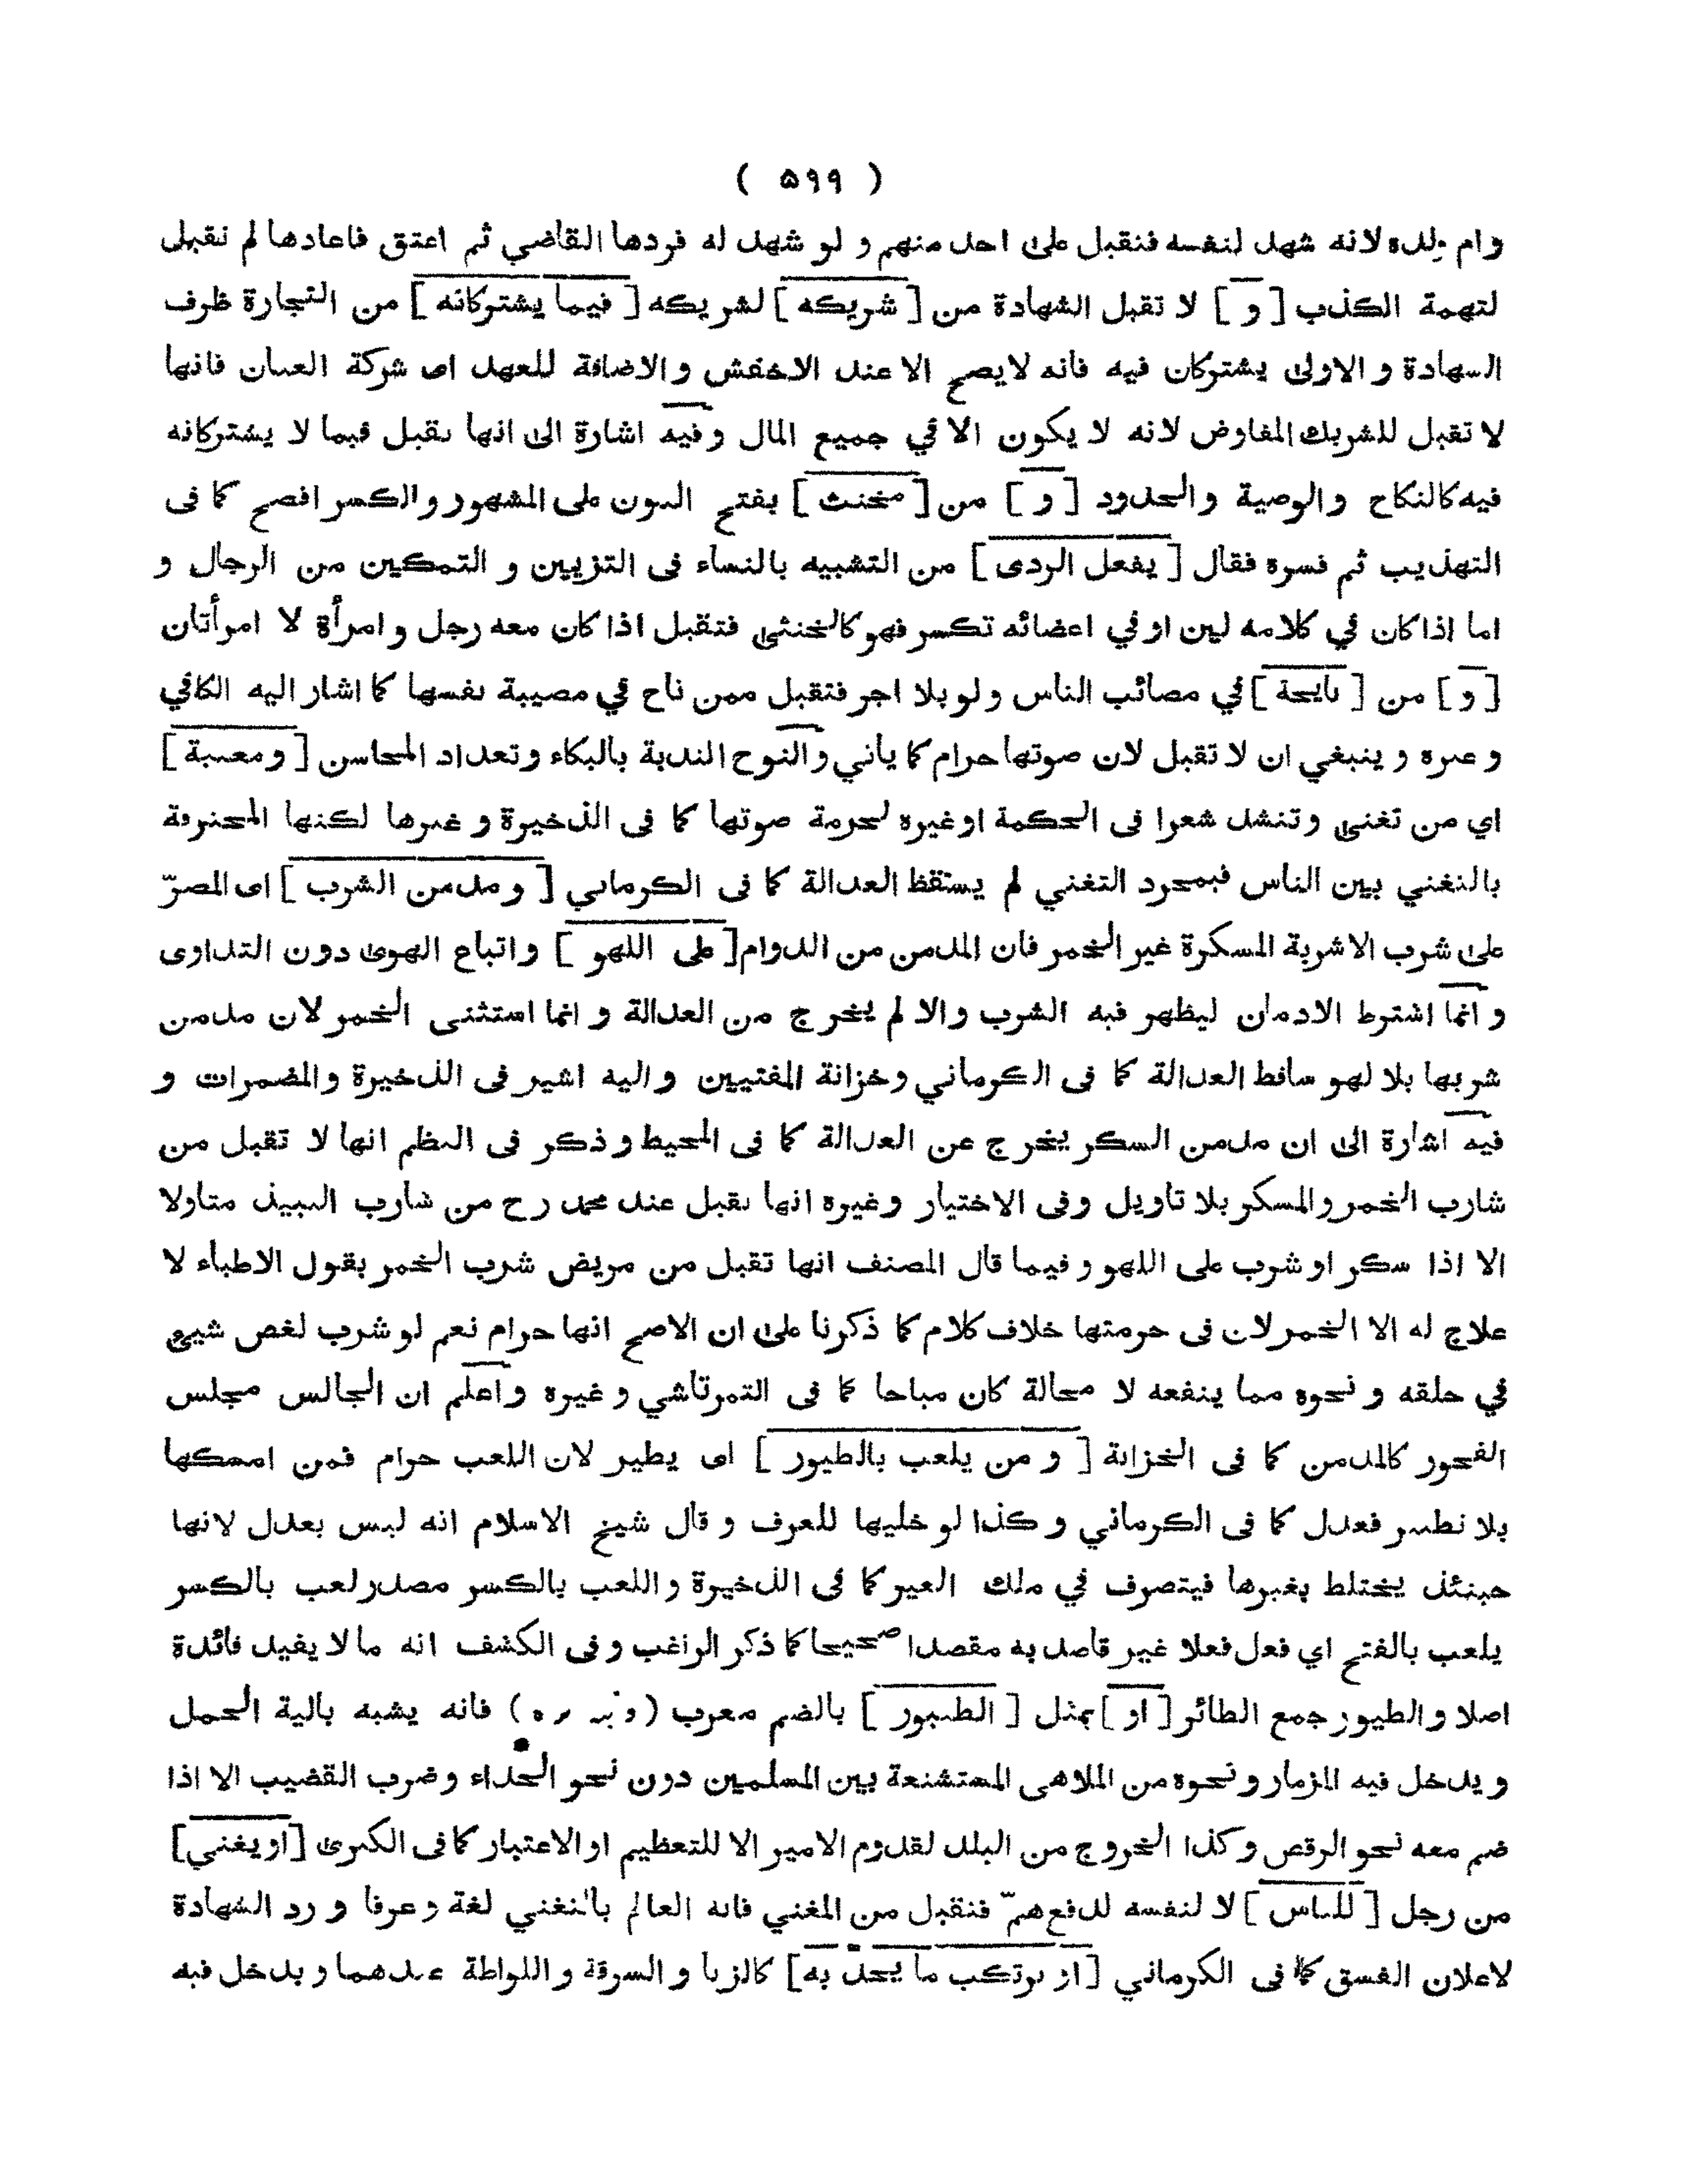 ( ۵۹۹ )
وام ولده لانه شهد لنفسه فتقبل على احد منهم و لو شهد له فردها القاضي ثم اعتق فاعادها لم تقبل
لتهمة الكذب [ و ] لا تقبل الشهادة من [ شريكه ] لشريكه [ فيما يشتركانه ] من التجارة ظرف
السهادة و الاولى يشتركان فيه فانه لايصح الا عند الاخفش و الاضافة للعهد اى شركة العنان فانها
لا تقبل للشريك المفاوض لانه لا يكون الا في جميع المال و فيه اشارة الى انها تقبل فيما لا يشتركانه
فيه كالنكاح والوصية والحدود [ و ] من [ مخنث ] بفتح النون على المشهور و الكسر افصح كما فى
التهذيب ثم فسره فقال [ يفعل الردى ] من التشبيه بالنساء فى التزيين و التمكين من الرجال و
اما اذا كان في كلامه لين او في اعضائه تكسر فهو كالخنثى فتقبل اذا كان معه رجل و امرأة لا امرأتان
[ و ] من [ نايحة ] في مصائب الناس و لو بلا اجر فتقبل ممن ناح في مصيبة نفسها كما اشار اليه الكافي
و غيره و ينبغي ان لا تقبل لان صوتها حرام كما يأتي و النوح الندبة بالبكاء و تعداد المحاسن [ ومغنية ]
اي من تغنى و تنشد شعرا فى الحكمة او غيره لحرمة صوتها كما فى الذخيرة و غيرها لكنها المحترفة
بالتغني بين الناس فبمجرد التغني لم يستقظ العدالة كما فى الكرماني [ و مدمن الشرب ] اى المصرّ
على شرب الاشربة المسكرة غير الخمر فان المدمن من الدوام [ على اللهو ] و اتباع الهوى دون التداوى
و انما اشترط الادمان ليظهر فيه الشرب والا لم يخرج من العدالة و انما استثنى الخمر لان مدمن
شربها بلا لهو ساقط العدالة كما فى الكرماني وخزانة المفتيين واليه اشير فى الذخيرة والمضمرات و
فيه اشارة الى ان مدمن السكر يخرج عن العدالة كما فى المحيط و ذكر فى النظم انها لا تقبل من
شارب الخمر والمسكر بلا تاويل وفى الاختيار وغيره انها تقبل عند محمد رح من شارب النبيذ متاولا
الا اذا سكر او شرب على اللهو و فيما قال المصنف انها تقبل من مريض شرب الخمر بقول الاطباء لا
علاج له الا الخمر لان فى حرمتها خلاف كلام كما ذكرنا على ان الاصح انها حرام نعم لو شرب لغص شيئ
في حلقه و نحوه مما ينفعه لا محالة كان مباحا كما فى التمرتاشي و غيره و اعلم ان الجالس مجلس
الفجور كالمدمن كما فى الخزانة [ و من يلعب بالطيور ] اى يطير لان اللعب حرام فمن امسكها
بلا تطيير فعدل كما فى الكرماني و كذا لو خليها للعرف و قال شيخ الاسلام انه ليس بعدل لانها
حينئذ يختلط بغيرها فيتصرف في ملك الغير كما فى الذخيرة و اللعب بالكسر مصدر لعب بالكسر
يلعب بالفتح اي فعل فعلا غير قاصد به مقصدا صحيحا كما ذكر الراغب و فى الكشف انه ما لا يفيد فائدة
اصلا و الطيور جمع الطائر [ او ] بمثل [ الطنبور ] بالضم معرب ( ) فانه يشبه بالية الحمل
و يدخل فيه المزمار و نحوه من الملاهى المستشنعة بين المسلمين دون نحو الحداء و ضرب القضيب الا اذا
ضم معه نحو الرقص و كذا الخروج من البلد لقدوم الامير الا للتعظيم او الاعتبار كما فى الكبرى [ او يغني ]
من رجل [ للناس ] لا لنفسه لدفع همّ فتقبل من المغني فانه العالم بالتغني لغة وعرفا و رد الشهادة
لاعلان الفسق كما فى الكرماني [ او يرتكب ما يحد به ] كالزنا و السرقة و اللواطة عندهما و يدخل فيه